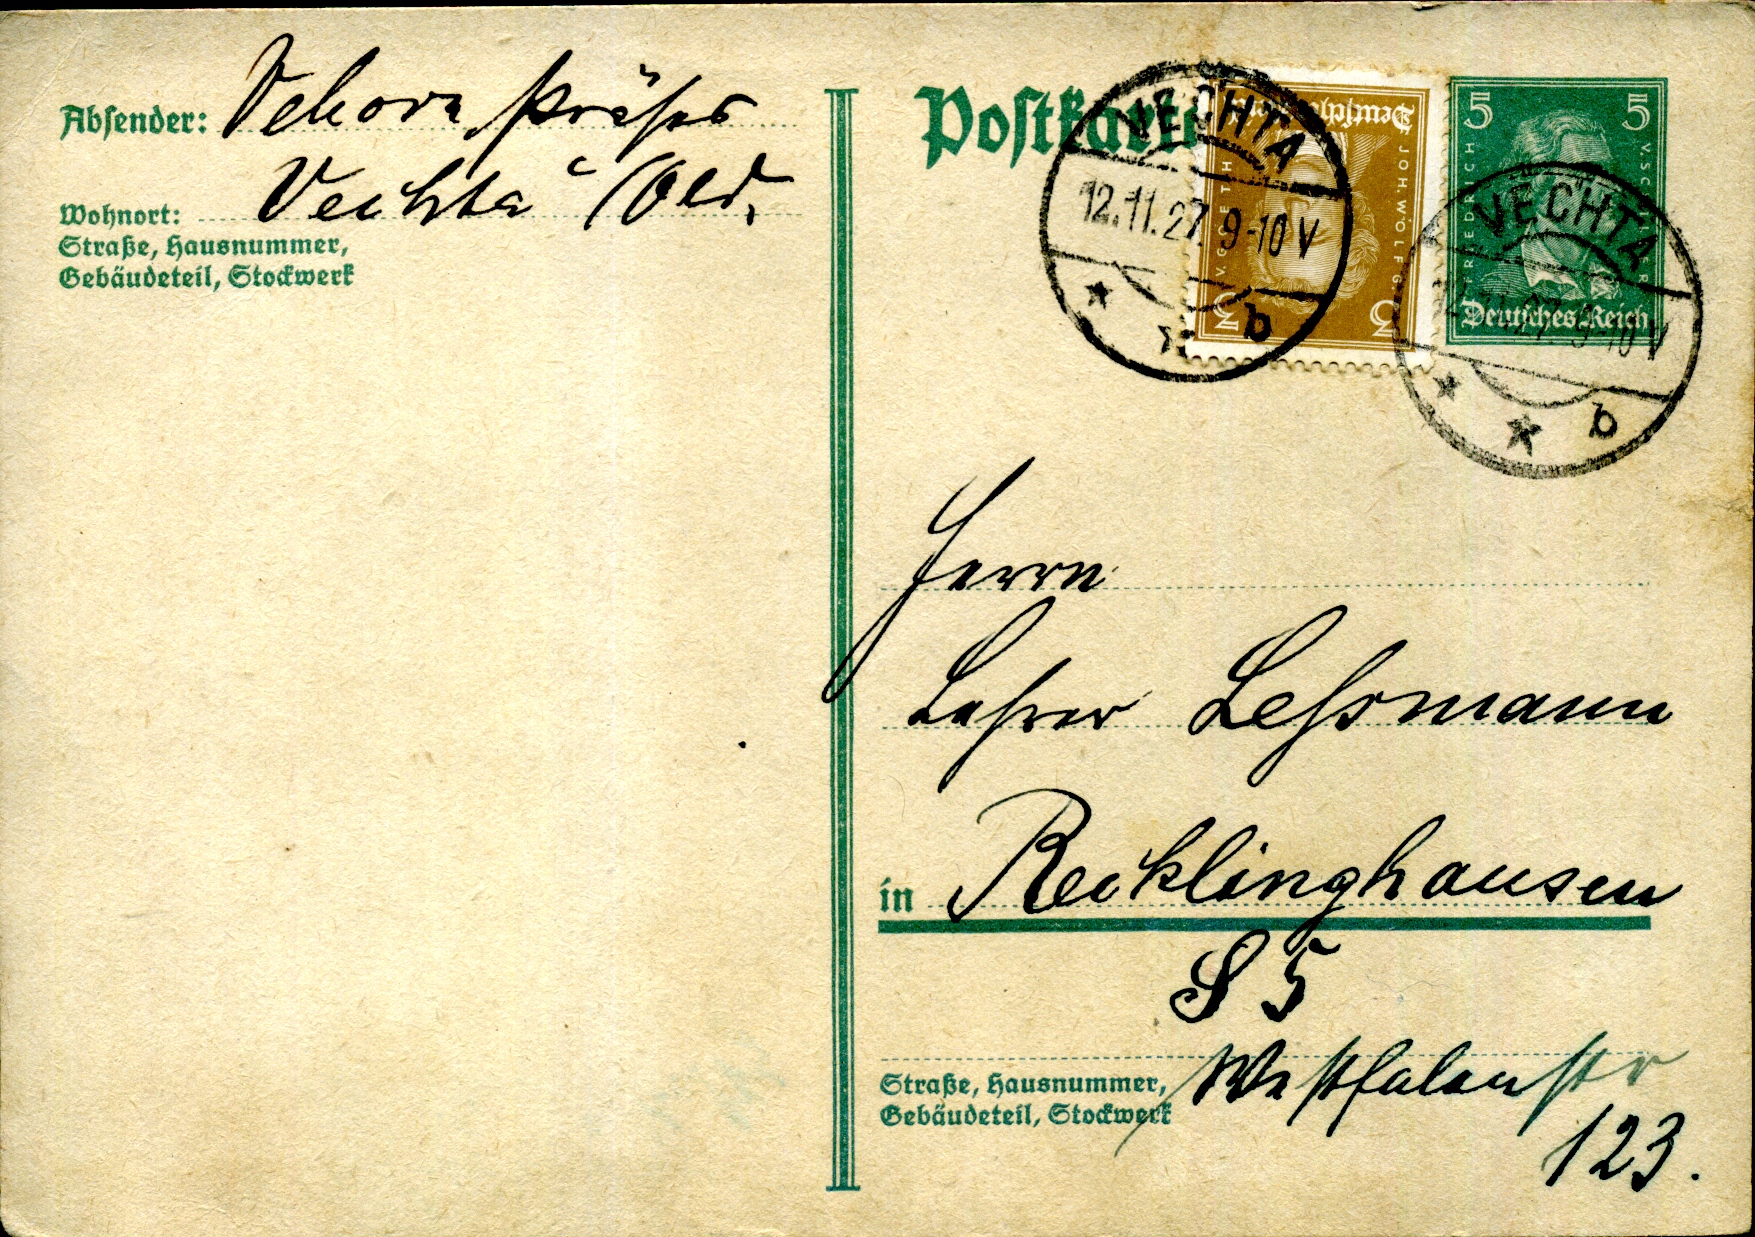 Absender: Vehorn, Präses
Vechta (Old.
Wohnort:
Straße, Hausnummer,
Gebäudeteil, Stockwerk
Postkarte
VECHTA
12.11.27. 9-10 V
b
Deutsches Reich
JOH. WOLFG. V. GOETHE
3 3
5 5
FRIEDRICH V. SCHILLER
Deutsches Reich
VECHTA
12.11.27. 9-10 V
b
Herrn
Lehrer
in Recklinghausen
S 5
Straße, Hausnummer,
Gebäudeteil, Stockwerk
Westfalenstr
123.